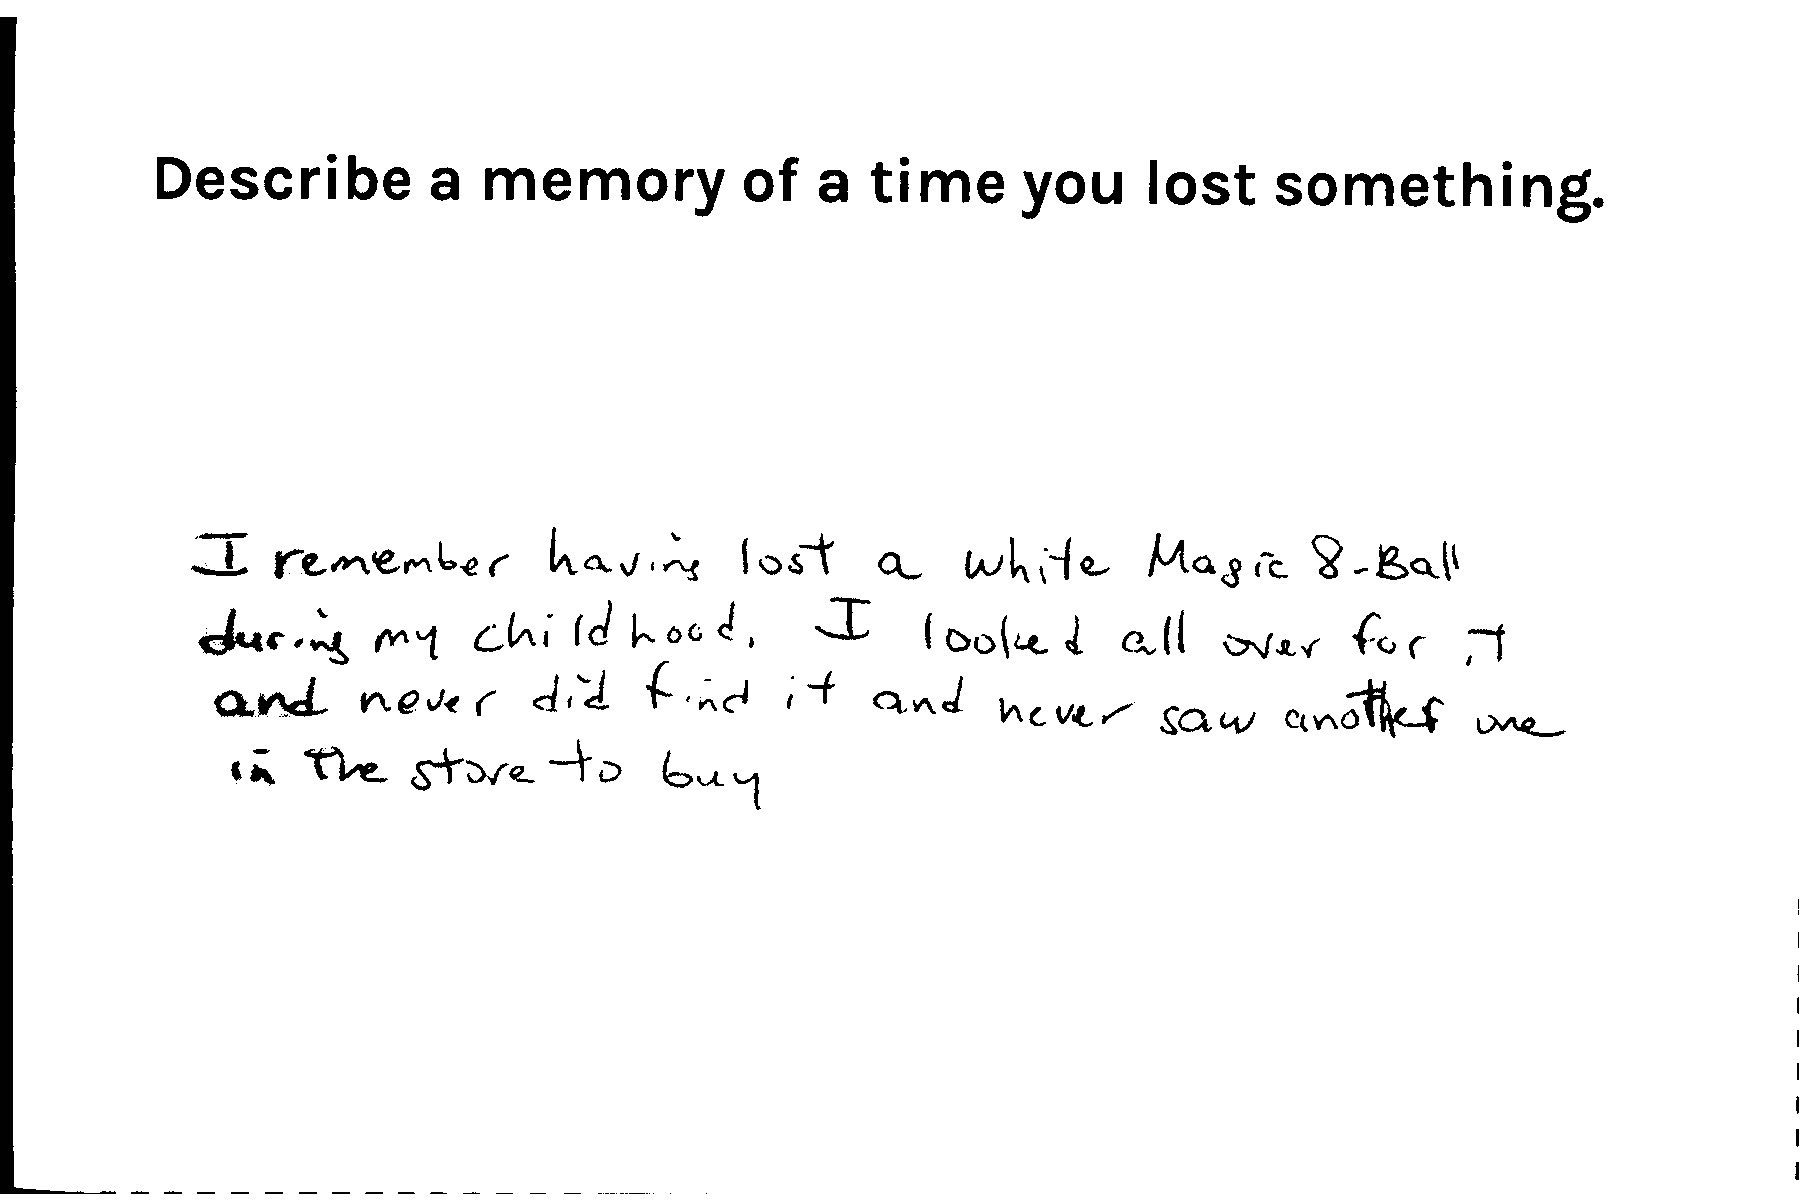 Describe a memory of a time you lost something.
I remember having lost a white Magic 8-Ball
during my childhood. I looked all over for it
and never did find it and never saw another one
in the store to buy